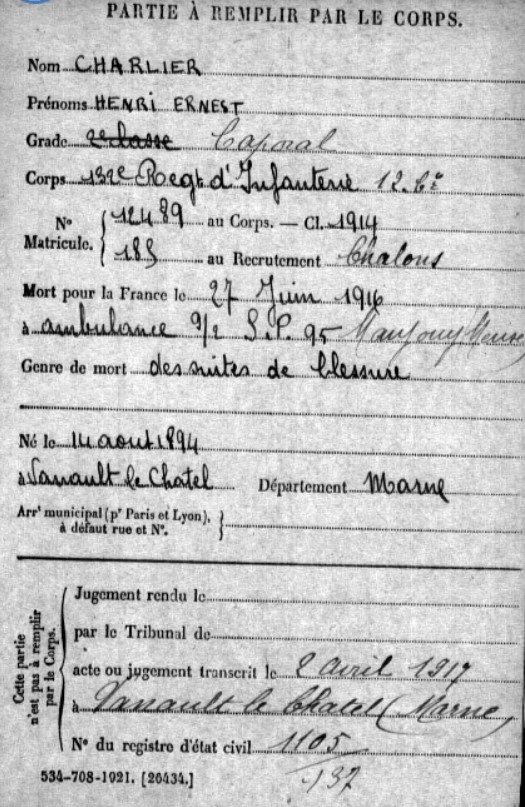 PARTIE À REMPLIR PAR LE CORPS.
Nom CHARLIER
Prénoms HENRI ERNEST
Grade 2e classe Caporal
Corps 132e Regt d'Infanterie 12. Cie
Nº Matricule. 12489 au Corps. — Cl. 1914
185 au Recrutement Chalons
Mort pour la France le 27 Juin 1916
à ambulance 9/2 S.P. 95 Meuse
Genre de mort des suites de blessure
Né le 14 aout 1894
à Vanault le Chatel Département Marne
Arrᵗ municipal (pʳ Paris et Lyon),
à défaut rue et Nº.
Cette partie
n'est pas à remplir
par le Corps.
Jugement rendu le
par le Tribunal de
acte ou jugement transcrit le 2 avril 1917
à Vanault le Chatel (Marne)
Nº du registre d'état civil 1105
137
534-708-1921. [26434.]